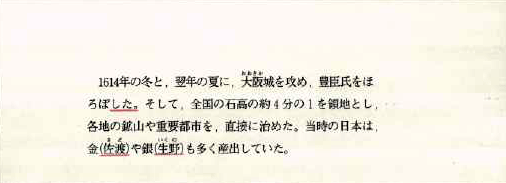 1614年の冬と，翌年の夏に，大阪城を攻め，豊臣氏をほ
ろぼした。そして，全国の石高の約4分の1を領地とし，
各地の鉱山や重要都市を，直接に治めた。当時の日本は，
金(佐渡)や銀(生野)も多く産出していた。